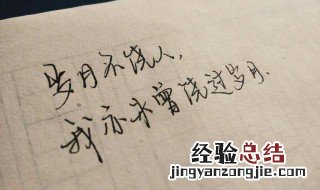 岁月不饶人，
我亦未曾饶过岁月.
经验总结
www.xiayuzhe.com